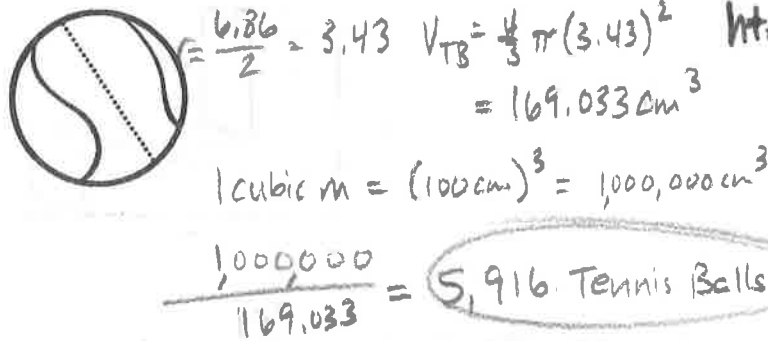 r = 6.86/2 = 3.43 V_TB = 4/3 π(3.43)² ht.
= 169.033 cm³
1 cubic m = (100cm)³ = 1,000,000 cm³
1,000,000/169.033 = 5,916 Tennis Balls